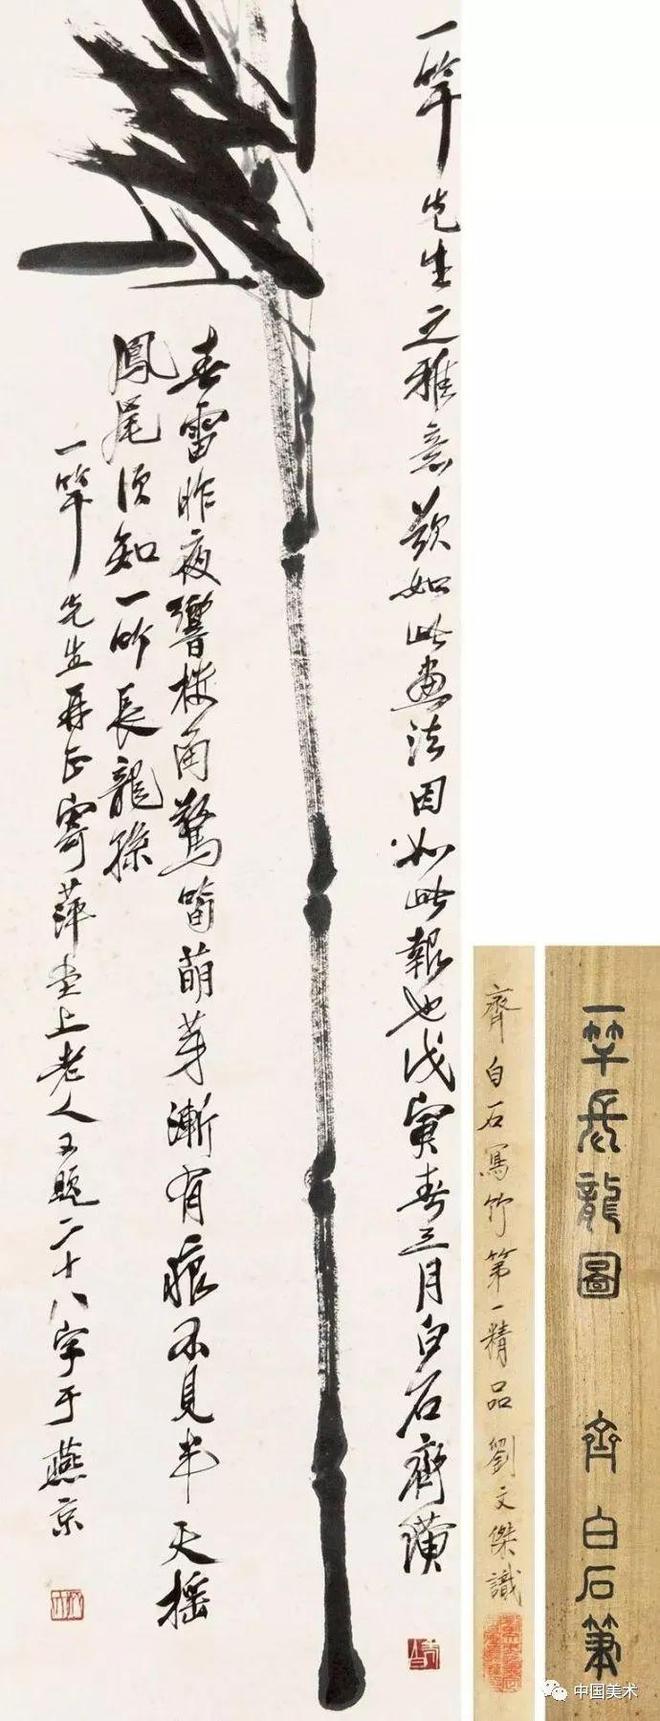 一竿先生之雅意款如此畫法因如此報也戊寅春三月白石齊璜
春雷昨夜響樓角驚萌芽漸有痕不見半天搖
鳳尾須知一長龍孫
一竿先生再正寄萍堂上老人又題二十八字于燕京
齊白石寫竹第一精品 劉文傑識
一竿長龍圖 齊白石筆
中国美术